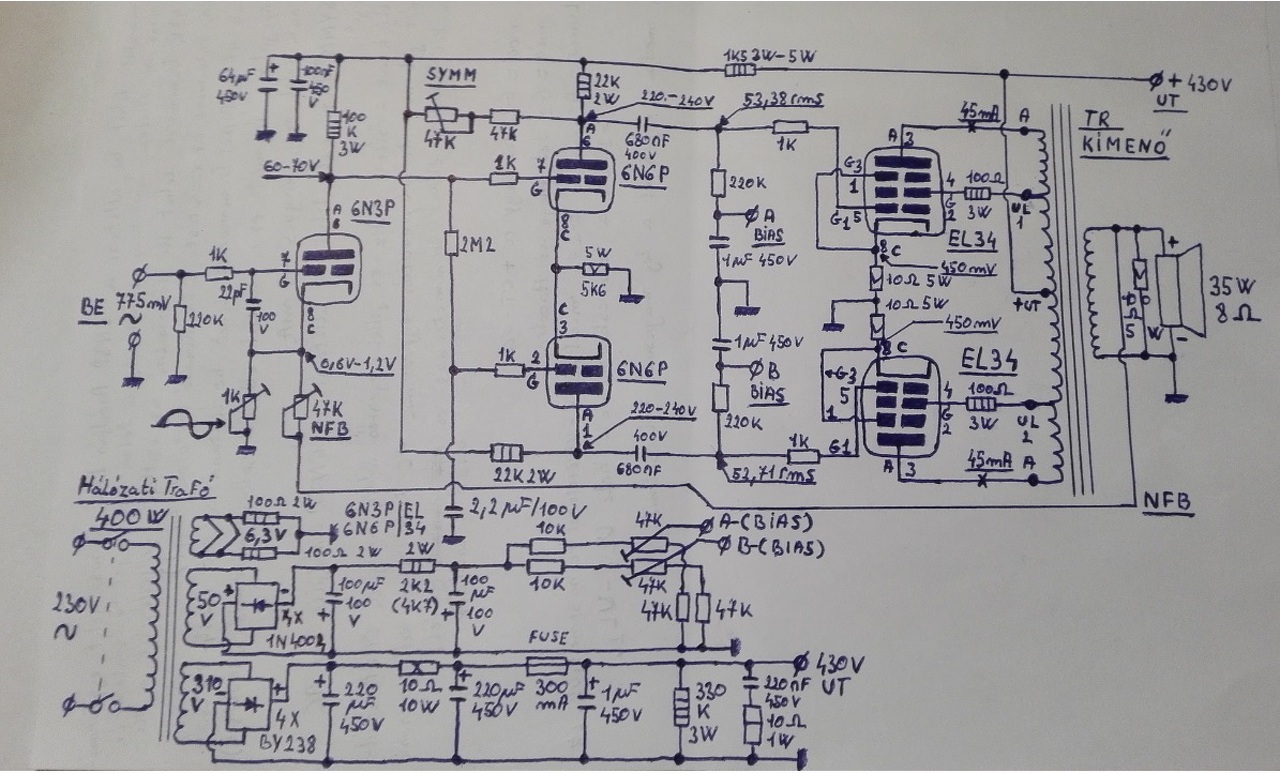 1K5 3W-5W
64µF
450V
100nF
450
V
SYMM
22K
2W
220.-240V
53,38 rms
Ø + 430V
UT
100
K
3W
47K
47K
A
6
680nF
400V
1K
45mA
A
TR
KIMENŐ
60-70V
1K
7
G
6N6P
A 3
G3
1
G1 5
4
G
2
100Ω
3W
UL
1
220K
Ø A
BIAS
A
6
6N3P
8
C
EL34
2M2
5W
5K6
1µF 450V
8
C
450mV
10Ω 5W
1K
7
G
22pF
100
V
BE
775mV
~
220K
8
C
+UT
10Ω 5W
450mV
+
35W
8Ω
-
5
W
C
3
1µF 450V
8 C
EL34
0,6V-1,2V
1K
2
G
6N6P
Ø B
BIAS
G3
5
1
4
G
2
100Ω
3W
UL
2
1K
47K
NFB
A
1
220-240V
220K
1K
G1
A 3
45mA
A
22K 2W
400V
680nF
52,71 rms
NFB
Hálózati Trafó
400W
100Ω 2W
6,3V
100Ω 2W
6N3P/EL
6N6P/34
2,2µF/100V
10K
47K
Ø A-(BIAS)
Ø B-(BIAS)
10K
47K
230V
~
50
V
+
-
4X
1N4002
100µF
100
V
+
2W
2K2
(4K7)
100
µF
100
V
+
47K
47K
FUSE
310
V
-
+
4X
BY238
+
220
µF
450V
10Ω
10W
+
220µF
450V
300
mA
+
1µF
450V
330
K
3W
220nF
450V
10Ω
1W
Ø 430V
UT